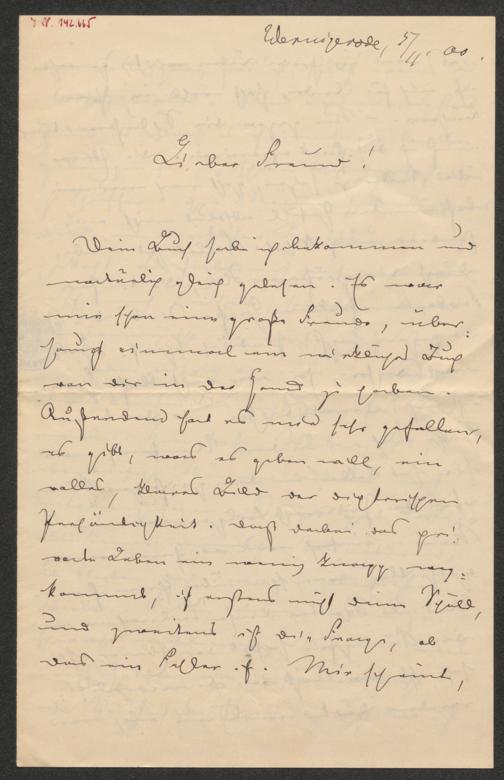 J. N. 142.665
Wernigerode, 5/11. 00.
Lieber Freund!
Dein Buch habe ich bekommen und
natürlich gleich gelesen. Es war
mir schon eine große Freude, über-
haupt einmal ein wirkliches Buch
von dir in der Hand zu haben.
Außerdem hat es mir sehr gefallen,
es gibt, was es geben will, ein
volles, klares Bild der dichterischen
Persönlichkeit. Daß dabei das pri-
vate Leben ein wenig knapp weg-
kommt, ist erstens nicht deine Schuld,
und zweitens ist die Frage, ob
das ein Fehler ist. Mir scheint,